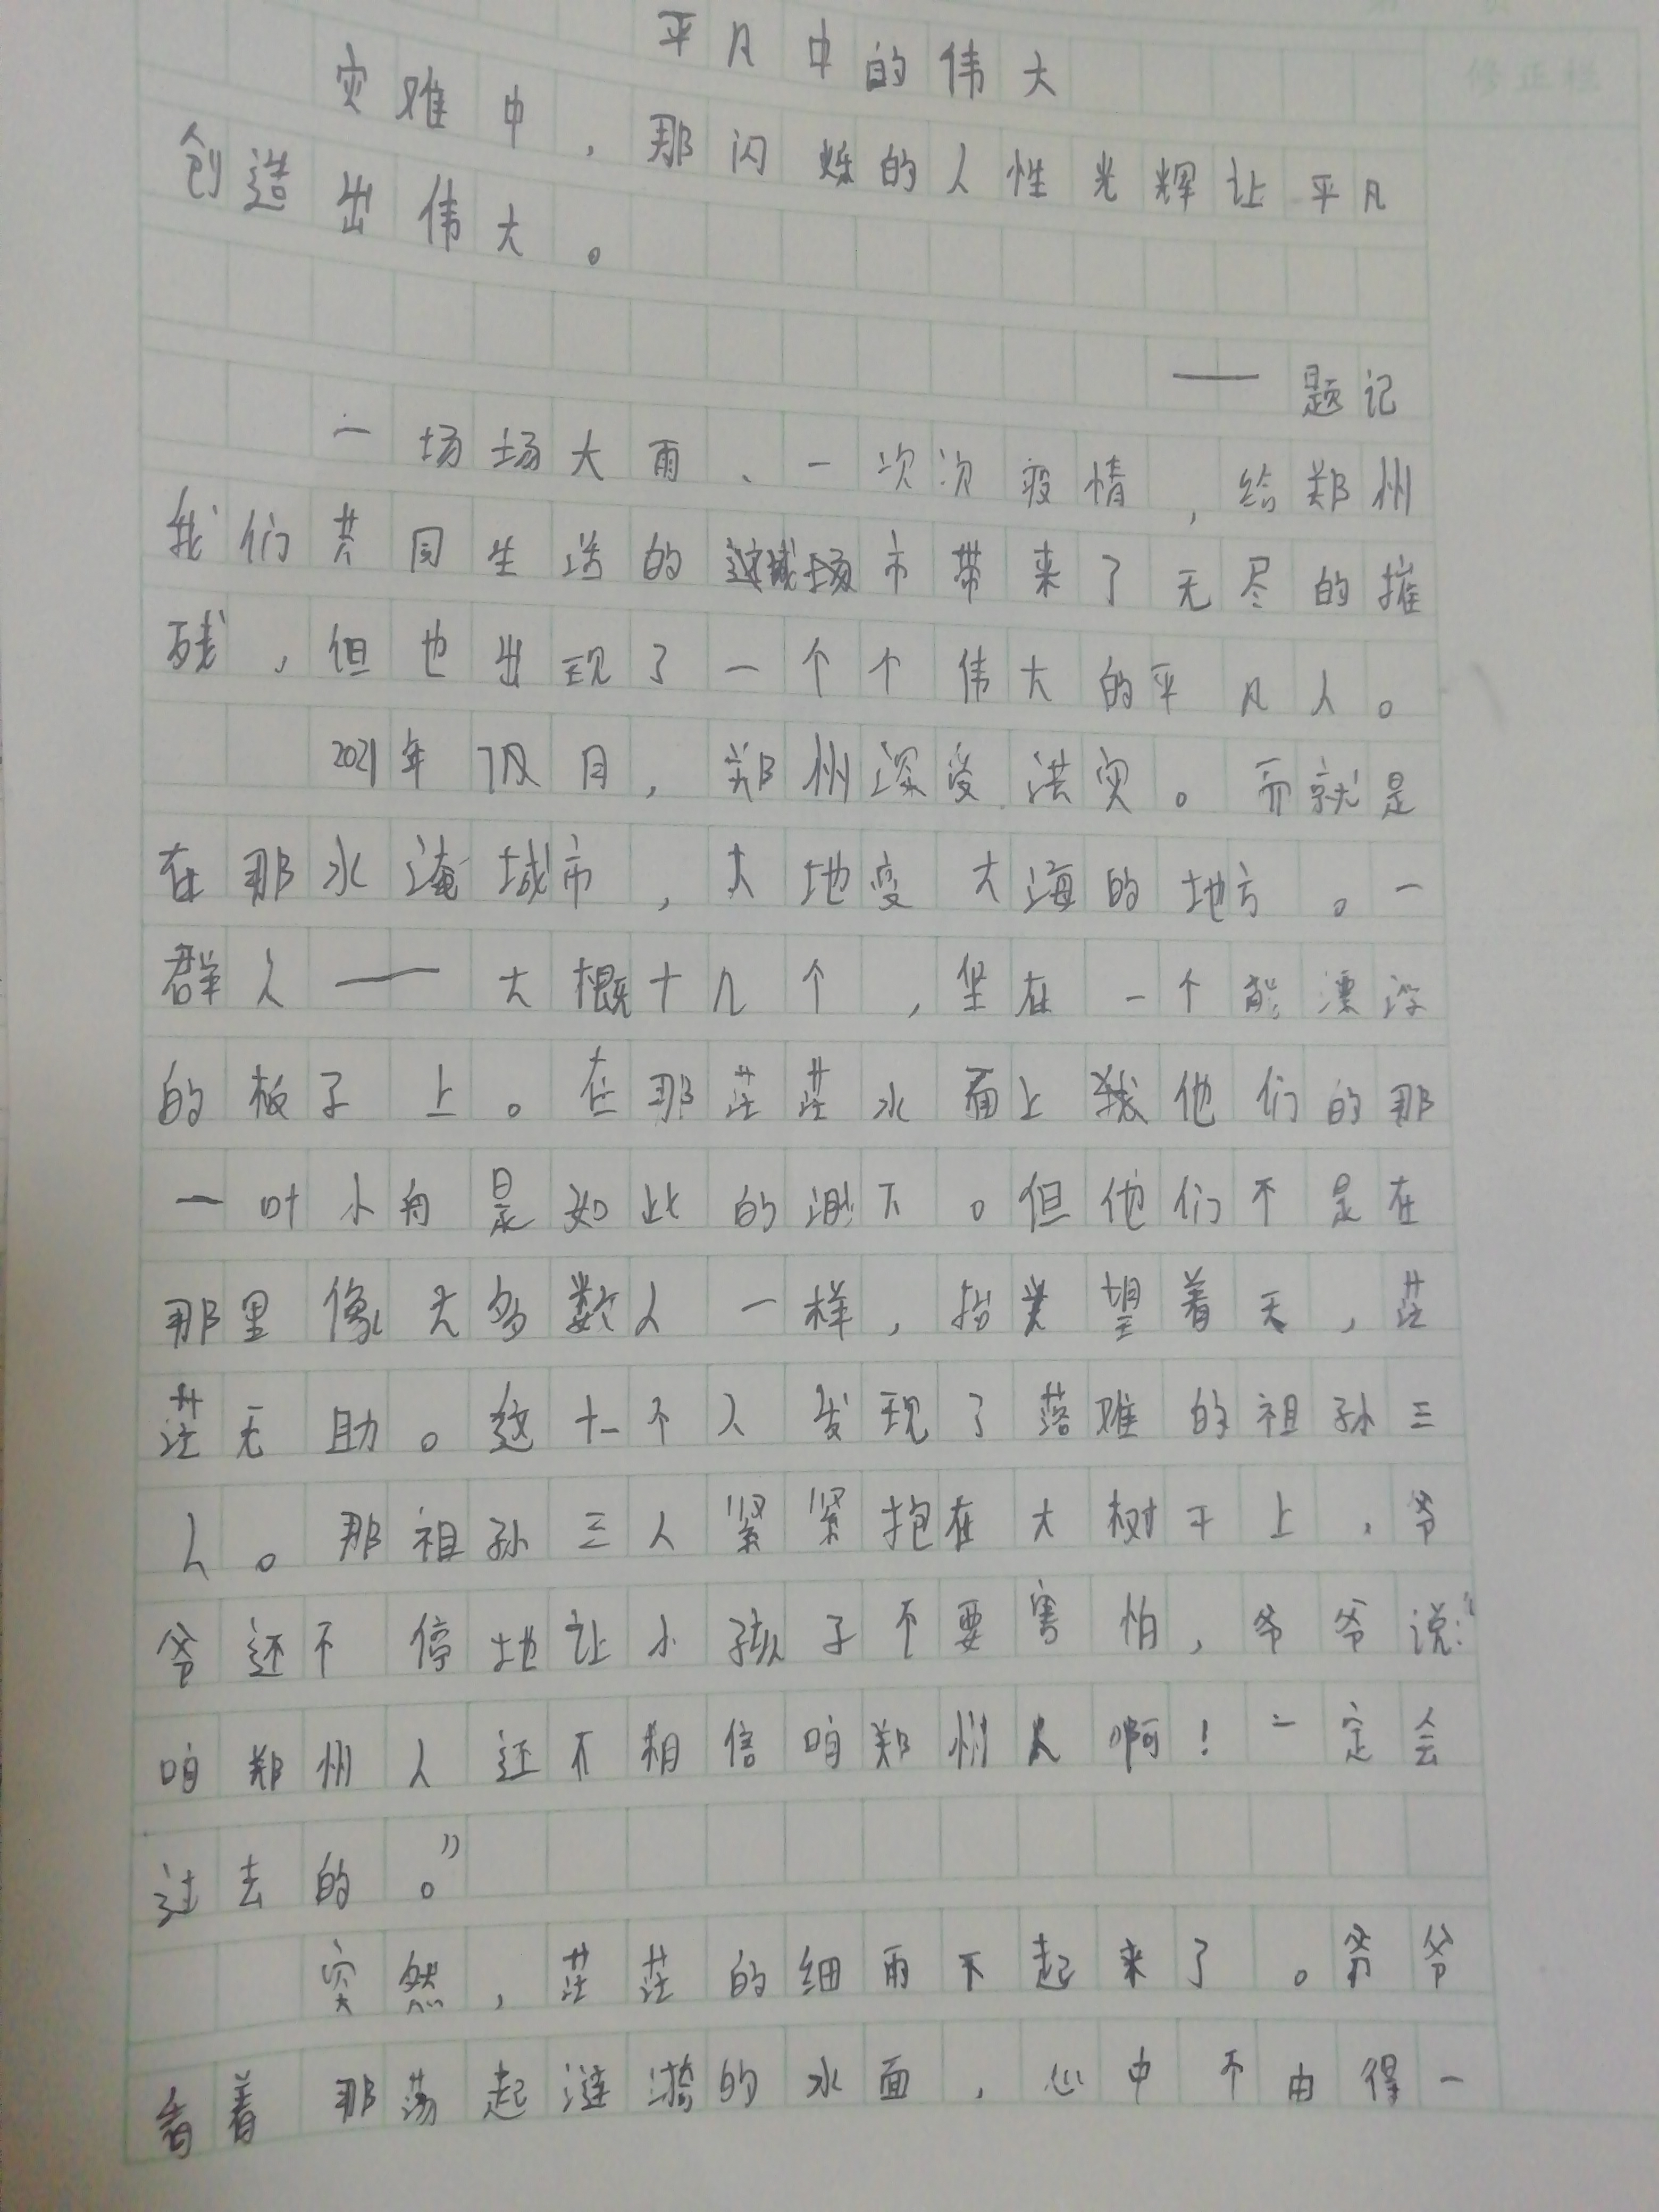 平凡中的伟大
灾难中，那闪烁的人性光辉让平凡
创造出伟大。
——题记
一场场大雨、一次次疫情，给郑州
我们共同生活的这城市带来了无尽的摧
残，但也出现了一个个伟大的平凡人。
2021年7月，郑州深受洪灾。而就是
在那水淹城市，大地变大海的地方。一
群人——大概十几个，坐在一个能漂浮
的板子上。在那茫茫水面上他们的那
一叶小舟是如此的渺小。但他们不是在
那里像大多数人一样，抬头望着天，茫
茫无助。这十一个人发现了落难的祖孙三
人。那祖孙三人紧紧抱在大树干上，爷
爷还不停地让小孩子不要害怕，爷爷说："
咱郑州人还不相信咱郑州人啊！一定会
过去的。"
突然，茫茫的细雨下起来了。爷爷
看着那荡起涟漪的水面，心中不由得一